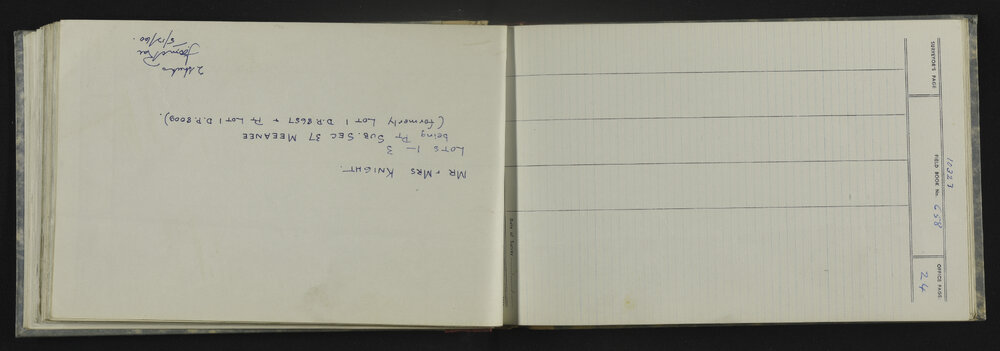 MR & MRS KNIGHT.
LOTS 1 – 3
being PT SUB. SEC 37 MEEANEE
(formerly LOT 1 D.P. 8657 & PT LOT 1 D.P. 8009).
5/12/60.
SURVEYOR'S PAGE
10323
FIELD BOOK No. 658
OFFICE PAGE
24
Date of Survey